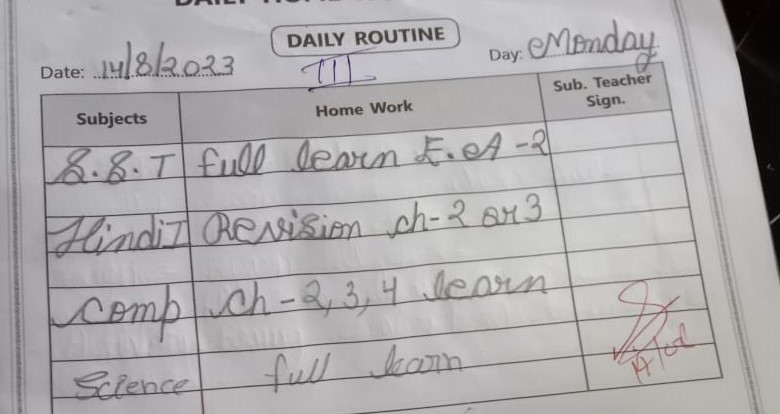 DAILY ROUTINE
Date: 14/8/2023 III Day: Monday
Subjects Home Work Sub. Teacher Sign.
S.S.T full learn F.A-2
Hindi I Revision ch-2 or 3
comp ch-2, 3, 4 learn
Science full learn